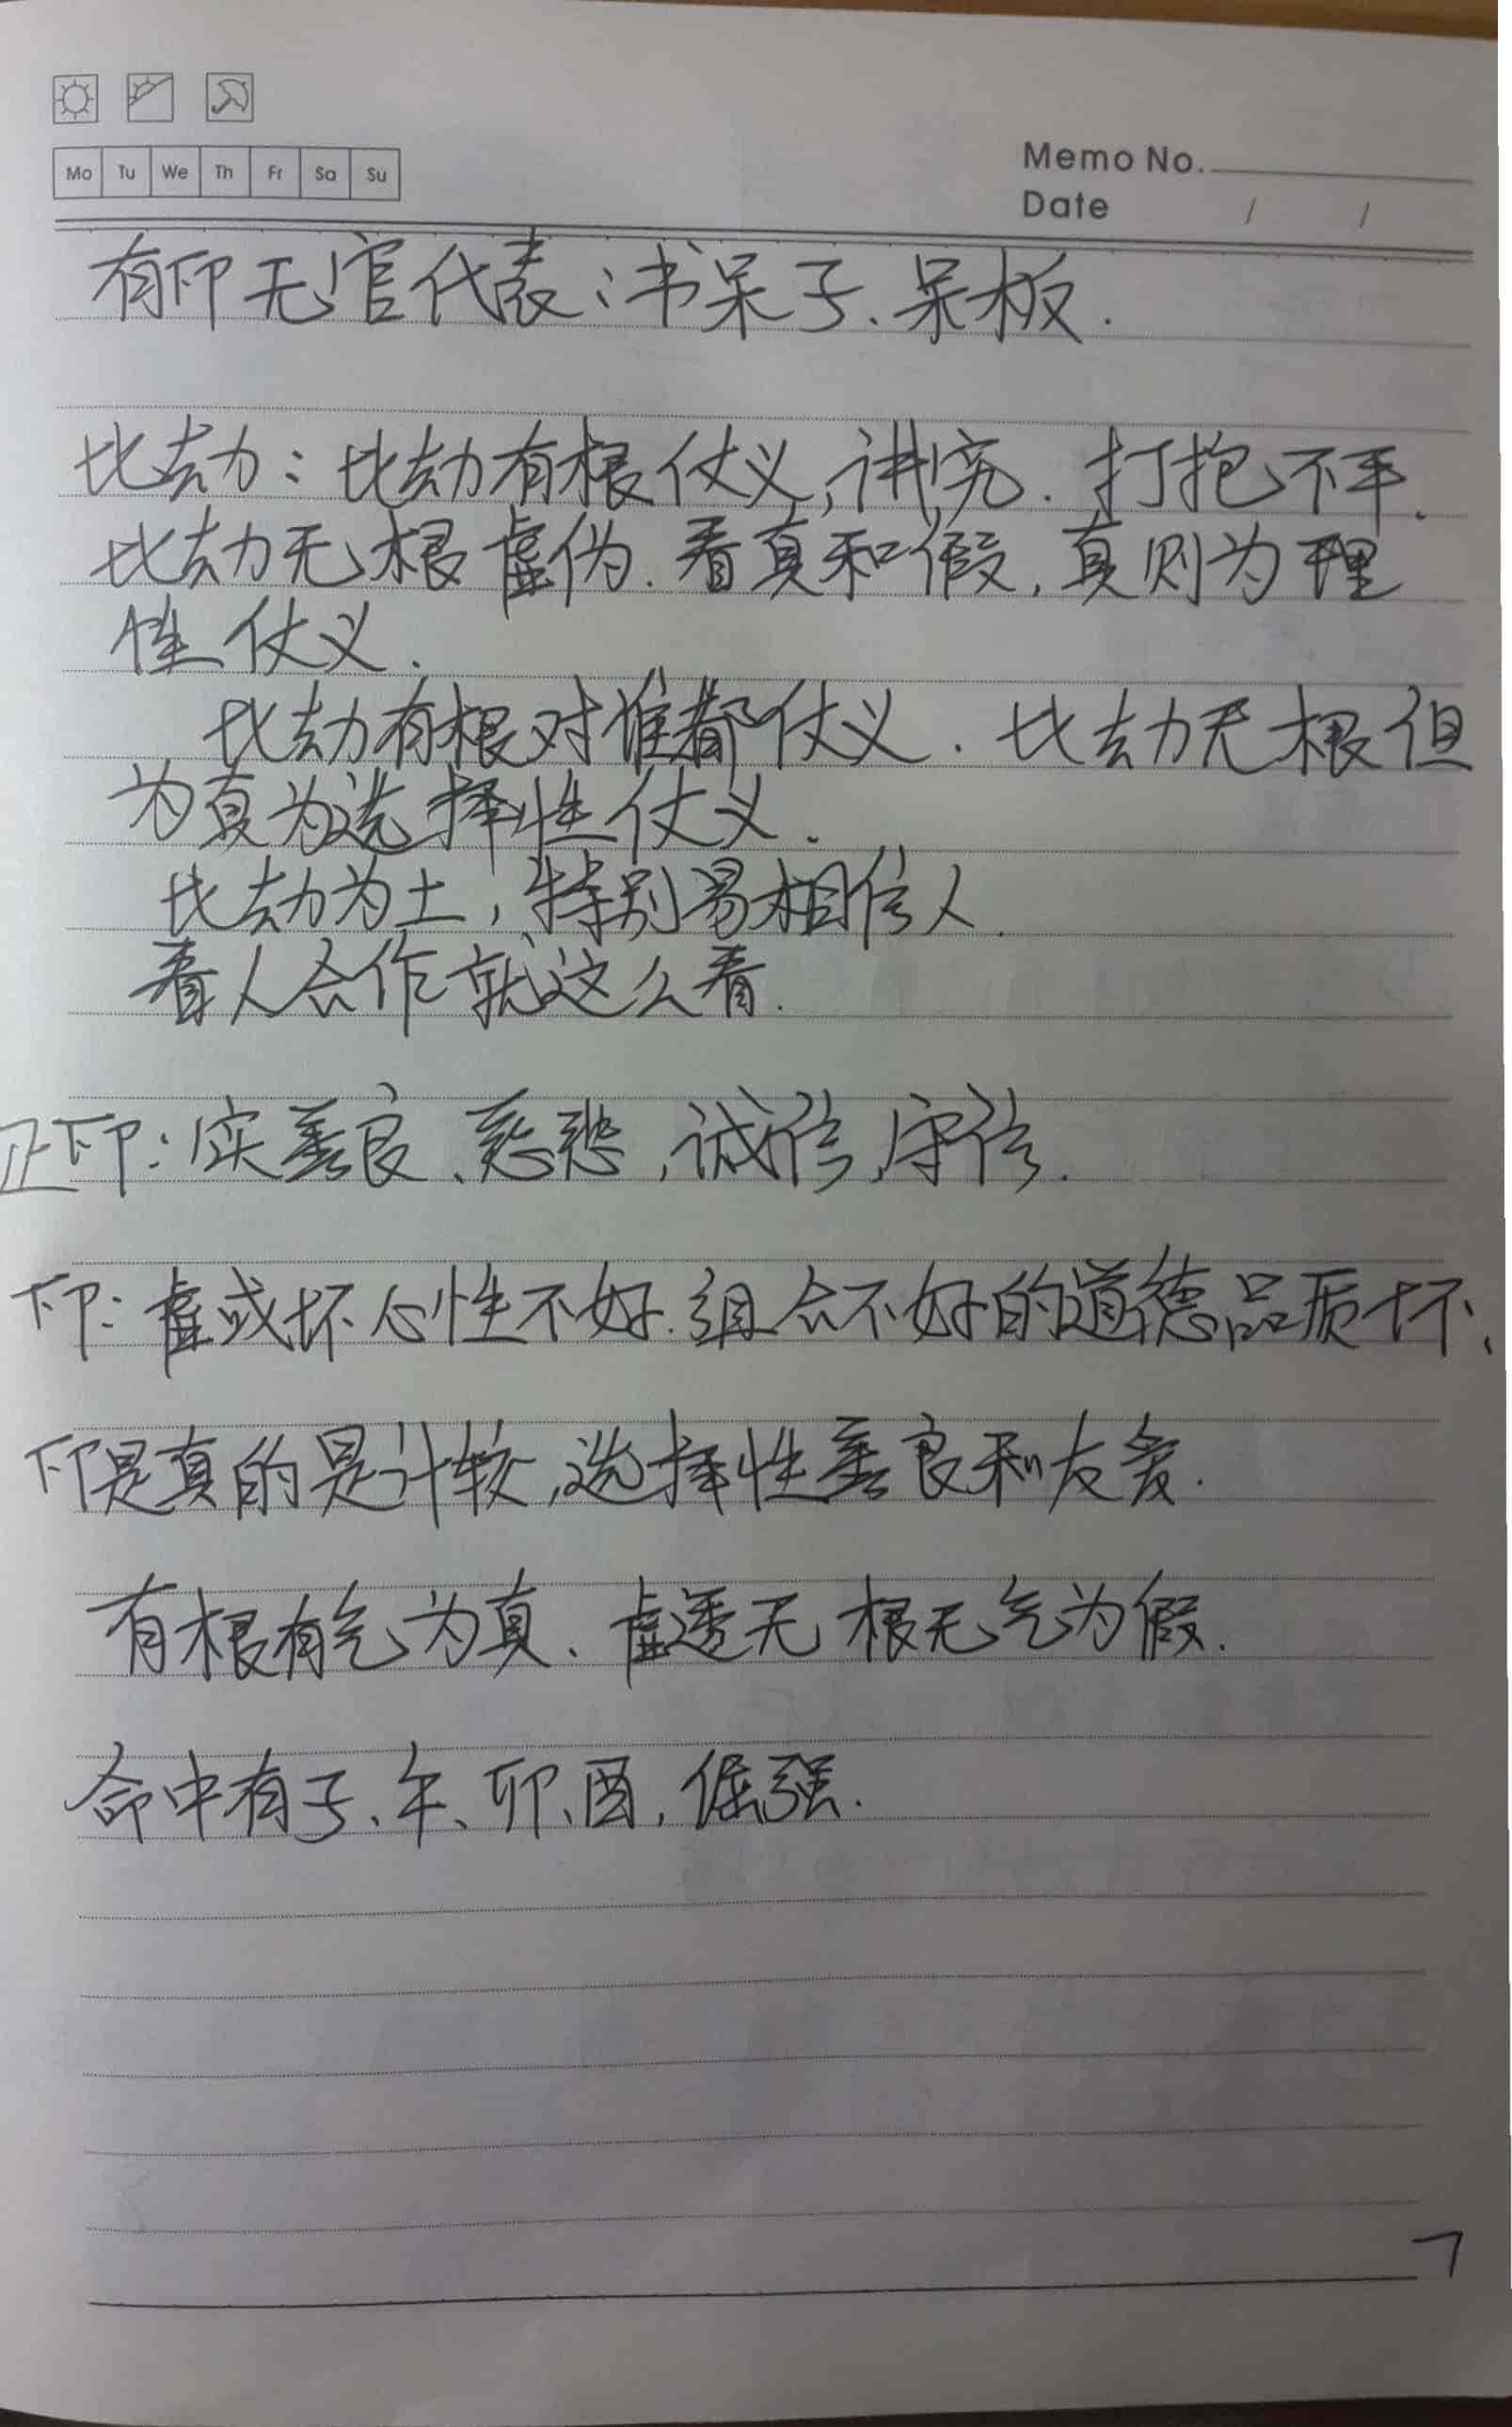 Mo Tu We Th Fr Sa Su
Memo No.
Date / /
有印无官代表:书呆子、呆板.
比劫:比劫有根仗义,讲究.打抱不平.
比劫无根虚伪.看真和假,真则为理
性仗义.
比劫有根对谁都仗义.比劫无根但
为真为选择性仗义.
比劫为土,特别易相信人.
看人合作就这么看.
正印:实善良、慈悲,诚信,守信.
印:虚或坏心性不好.组合不好的道德品质坏、
印是真的是计较,选择性善良和友爱.
有根有气为真、虚透无根无气为假.
命中有子、午、卯、酉,倔强.
7